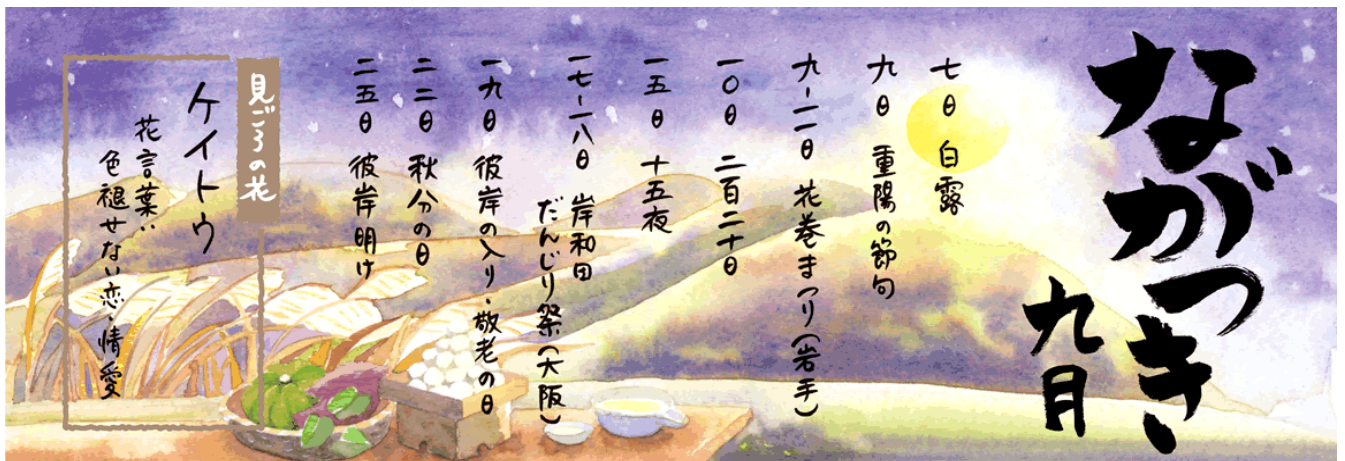 ながつき
九月
七日 白露
九日 重陽の節句
九-一一日 花巻まつり(岩手)
一〇日 二百二十日
一五日 十五夜
一七-一八日 岸和田
だんじり祭(大阪)
一九日 彼岸の入り・敬老の日
二二日 秋分の日
二五日 彼岸明け
見ごろの花
ケイトウ
花言葉:
色褪せない恋・情愛